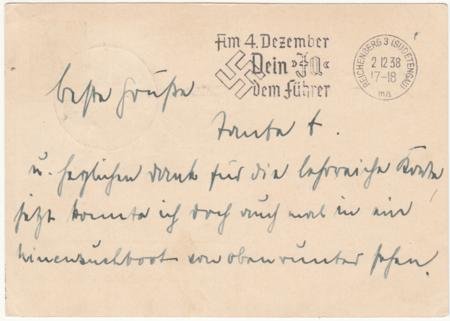 Am 4. Dezember
Dein »Ja«
dem Führer
REICHENBERG 3 (SUDETENGAU)
2 12 38
17-18
ma
beste Grüße
Tante t.
u. herzlichen Dank für die lehrreiche Karte,
jetzt konnte ich doch auch mal in ein
Minensuchboot von oben runter sehen.